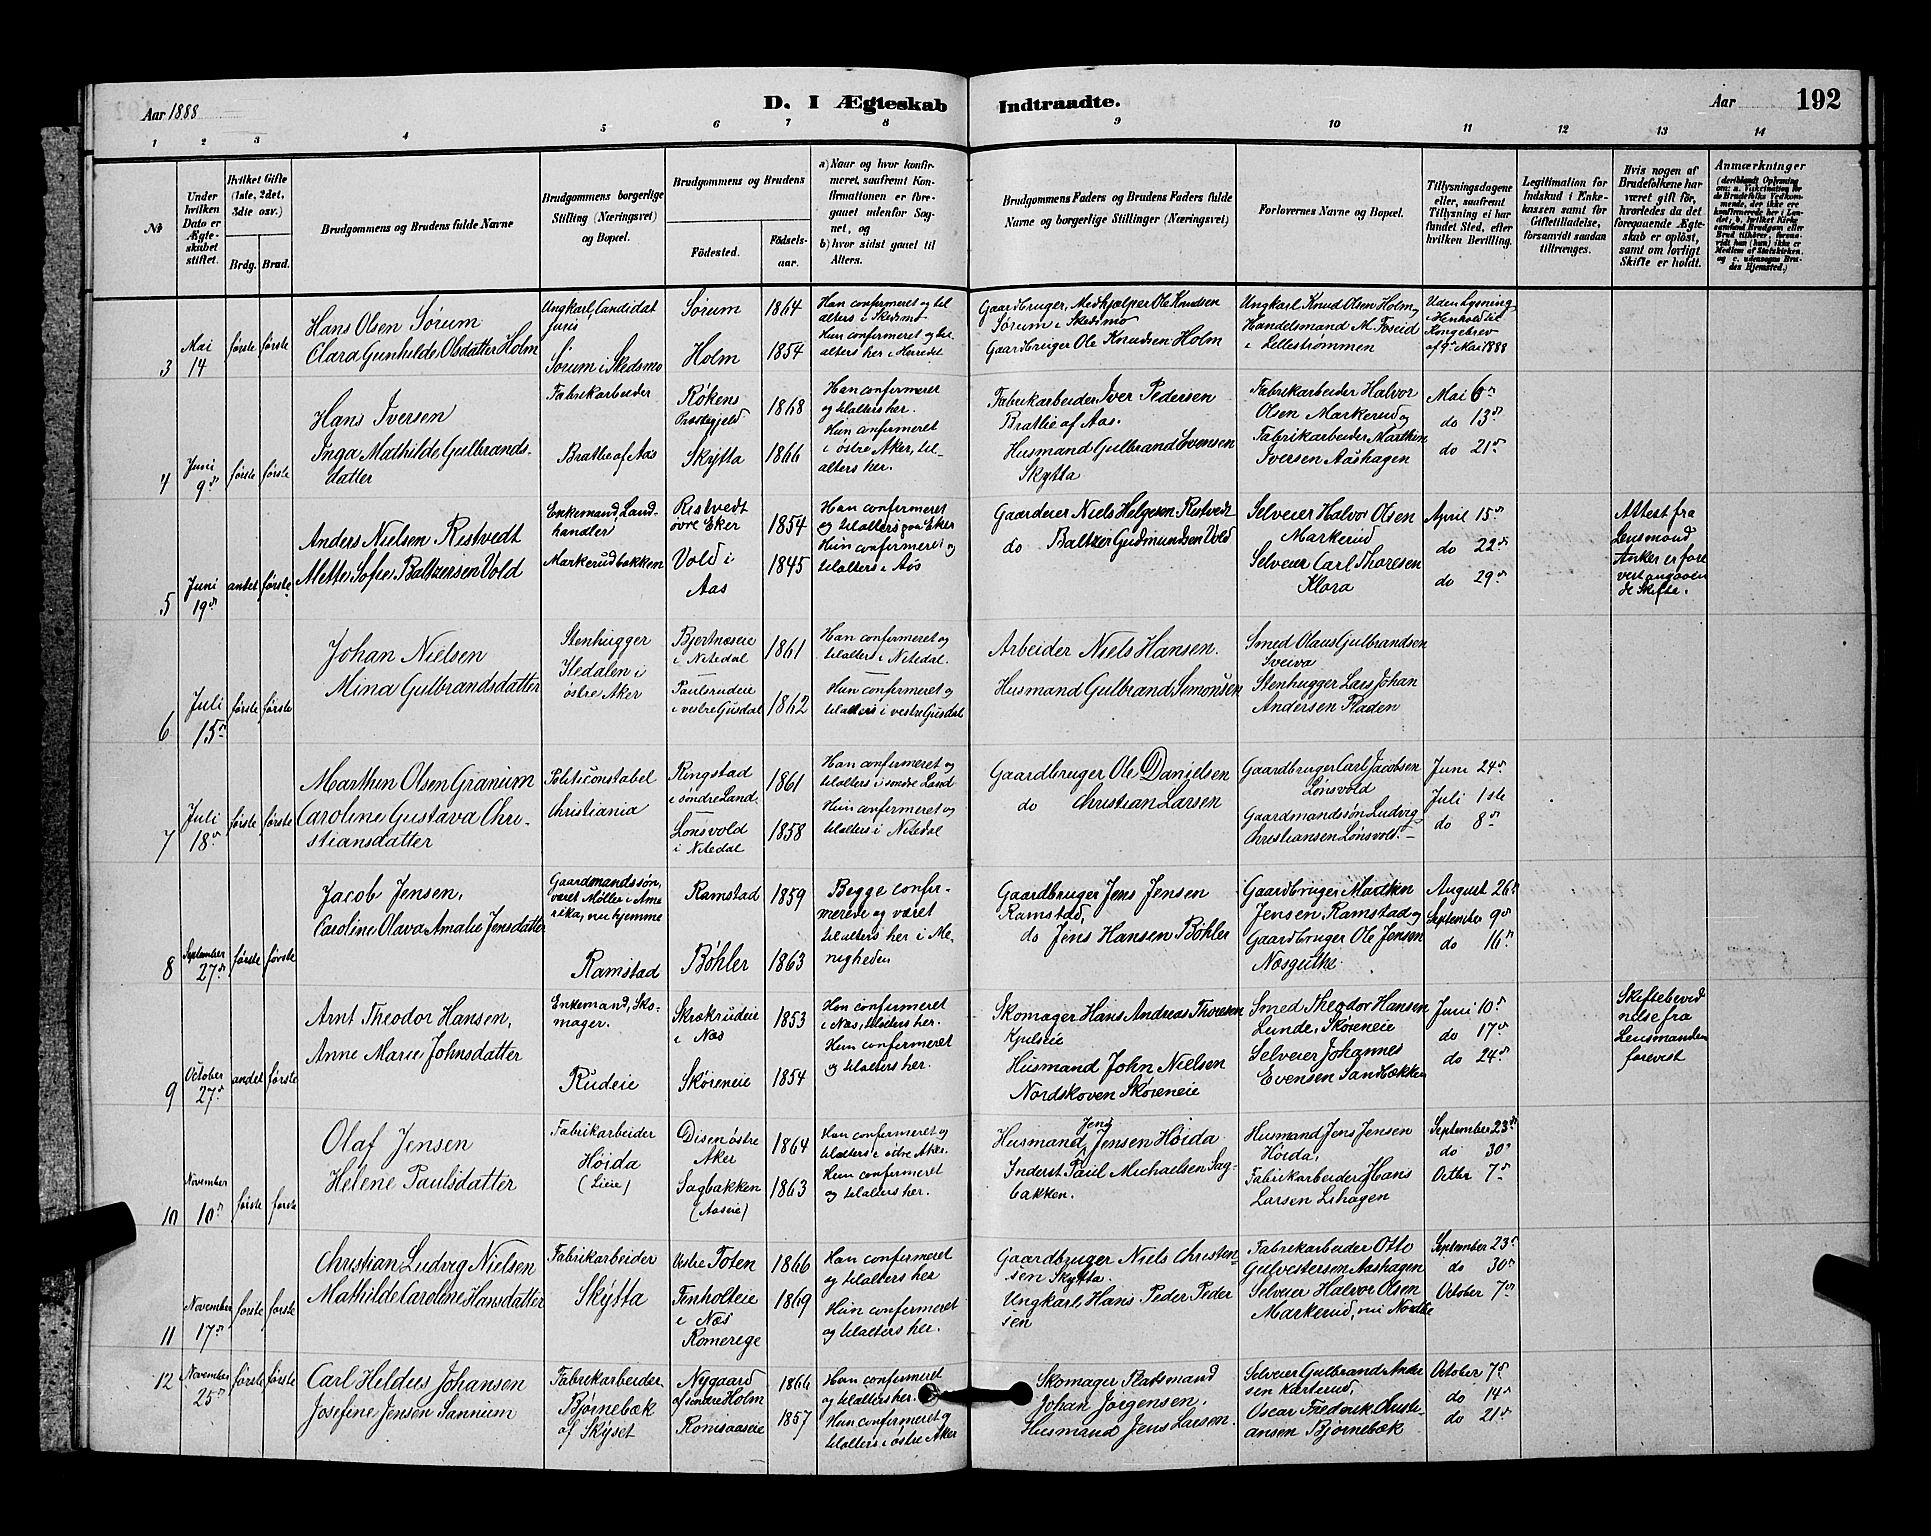 Aar 1888
D. I Ægteskab Indtraadte.
Aar
192
1 2 3 4 5 6 7 8 9 10 11 12 13 14
No
Under hvilken Dato er Ægteskabet stiftet.
Hvilket Gifte (1ste, 2det, 3die osv.)
Brdg. Brud.
Brudgommens og Brudens fulde Navne
Brudgommens borgerlige Stilling (Næringsvei) og Bopæl.
Brudgommens og Brudens
Fødested.
Fødselsaar.
a) Naar og hvor konfirmeret, saafremt Konfirmationen er foregaaet udenfor Sognet, og
b) hvor sidst gaaet til Alters.
Brudgommens Faders og Brudens Faders fulde Navne og borgerlige Stillinger (Næringsvei)
Forlovernes Navne og Bopæl.
Tillysningsdagene eller, saafremt Tillysning ei har fundet Sted, efter hvilken Bevilling.
Legitimation for Indskud i Enkekassen samt for Giftetilladelse, forsaavidt saadan tiltrænges.
Hvis nogen af Brudefolkene har været gift før, hvorledes da det foregaaende Ægteskab er opløst, samt om lovligt Skifte er holdt.
Anmærkninger
3
Mai
14
første første
Hans Olsen Sørum
Clara Gunhilde Olsdatter Holm
Ungkarl, Candidat
juris
Sørum i Skedsmo
Sørum
Holm
1864
1854
Han confirmeret og til
alters i Skedsmo
Hun confirmeret og til
alters her i Herredet
Gaardbruger, Medhjælper Ole Knudsen
Sørum i Skedsmo
Gaardbruger Ole Knudsen Holm
Ungkarl Knud Olsen Holm,
Handelsmand M. Foseid
i Lillestrømmen
Uden Lysning
i Henhold til
Kongebrev
af 9de Mai 1888
4
Juni
9de
første første
Hans Iversen
Inga Mathilde Gulbrands-
datter
Fabrikarbeider
Bratlie af Aas
Røkens
Præstegjeld
Skytta
1868
1866
Han confirmeret
og tilalters her.
Hun confirmeret
i østre Aker, til-
alters her.
Fabrikarbeider Iver Pedersen
Bratlie af Aas.
Husmand Gulbrand Evensen
Skytta
Fabrikarbeider Halvor
Olsen Markerud og
Fabrikarbeider Marthin
Iversen Aashagen
Mai 6de
do 13de
do 21de
5
Juni
19de
andet første
Anders Nielsen Ristvedt
Mette Sofie Baltzersen Vold
Enkemand, Land-
handler
Markerudbakken
Ristvedt
øvre Eker
Vold i
Aas
1854
1845
Han confirmeret
og tilalters paa Eker
Hun confirmeret og
tilalters i Aas
Gaardeier Niels Helgesen Ristvedt
do Baltzer Gudmundsen Vold
Selveier Halvor Olsen
Markerud
Selveier Carl Thoresen
Klora
April 15de
do 22de
do 29de
Attest fra
Lensmand
Anker er fore
vist angaaen
de Skifte.
6
Juli
15de
første første
Johan Nielsen
Mina Gulbrandsdatter
Stenhugger
Hedalen i
østre Aker
Bjertnæseie
i Nitedal
Paulsrudeie
i vestre Gusdal
1861
1862
Han confirmeret og
tilalters i Nitedal.
Hun confirmeret og
tilalters i vestre Gusdal
Arbeider Niels Hansen.
Husmand Gulbrand Simonsen
Smed Olaus Gulbrandsen
Sveiva
Stenhugger Lars Johan
Andersen Fladen
7
Juli
18de
første første
Marthin Olsen Granum
Caroline Gustava Chri-
stiansdatter
Politiconstabel
Christiania
Ringstad
i søndre Land.
Lønsvold
i Nitedal
1861
1858
Han confirmeret og
tilalters i søndre Land
Hun confirmeret og
tilalters i Nitedal
Gaardbruger Ole Danielsen
do Christian Larsen
Gaardbruger Carl Jacobsen
Lønsvold
Gaardmandssøn Ludvig
Christiansen Lønsvold.
Juni 24de
Juli 1ste
do 8de
8
September
27de
første første
Jacob Jensen,
Caroline Olava Amalie Jensdatter
Gaardmandssøn,
været Møller i Ame
rika, nu hjemme
Ramstad
Ramstad
Bøhler
1859
1863
Begge confir-
merede og været
tilalters her i Me-
nigheden
Gaardbruger Jens Jensen
Ramstad,
do Jens Hansen Bøhler
Gaardbruger Marthin
Jensen Ramstad og
Gaardbruger Ole Jensen
Næsguthe.
August 26de
September 9de
do 16de
9
October
27de
andet første
Arnt Theodor Hansen,
Anne Marie Johnsdatter
Enkemand, Sko-
mager.
Rudeie
Skrækrudeie
i Næs
Skøreneie
1853
1854
Han confirmeret
i Næs, tilalters her.
Hun confirmeret
og tilalters her.
Skomager Hans Andreas Thoresen
Kjulseie
Husmand John Nielsen
Nordskoven Skøreneie
Smed Theodor Hansen
Lunde, Skøreneie
Selveier Johannes
Evensen Sandbækken
Juni 10de
do 17de
do 24de
Skiftebevid
nelse fra
Lensmanden
forevist
10
November
10de
første første
Olaf Jensen
Helene Paulsdatter
Fabrikarbeider
Høida
(Lieie)
Disen østre
Aker
Sagbakken
(Aaseie)
1864
1863
Han confirmeret og
tilalters i østre Aker.
Hun confirmeret
og tilalters her.
Husmand Jens Jensen Høida
Inderst Paul Michaelsen Sag-
bakken.
Husmand Jens Jensen
Høida,
Fabrikarbeider Hans
Larsen Lihagen
September 23de
do 30de
Octbr 7de
11
November
17de
første første
Christian Ludvig Nielsen
Mathilde Caroline Hansdatter
Fabrikarbeider
Skytta
Vestre Toten
Finholteie
i Næs
Romerege
1866
1869
Han confirmeret
og tilalters her
Hun confirmeret
og tilalters her.
Gaardbruger Niels Christen-
sen Skytta.
Ungkarl Hans Peder Peder
sen
Fabrikarbeider Otto
Gulvestersen Aashagen
Selveier Halvor Olsen
Markerud, nu Nordlie
September 23de
do 30de
October 7de
12
November
25de
første første
Carl Heldus Johansen
Josefine Jensen Sannum
Fabrikarbeider
Bjørnebæk
af Skyset
Nygaard
af søndre Holm
Romsaaseie
1866
1857
Han confirmeret
og tilalters her.
Hun confirmeret og
tilalters i østre Aker
Skomager Platsmand
Johan Jørgensen.
Husmand Jens Larsen.
Selveier Gulbrand Ander
sen Karterud,
Oscar Frederik Christi-
ansen Bjørnebæk
October 7de
do 14de
do 21de